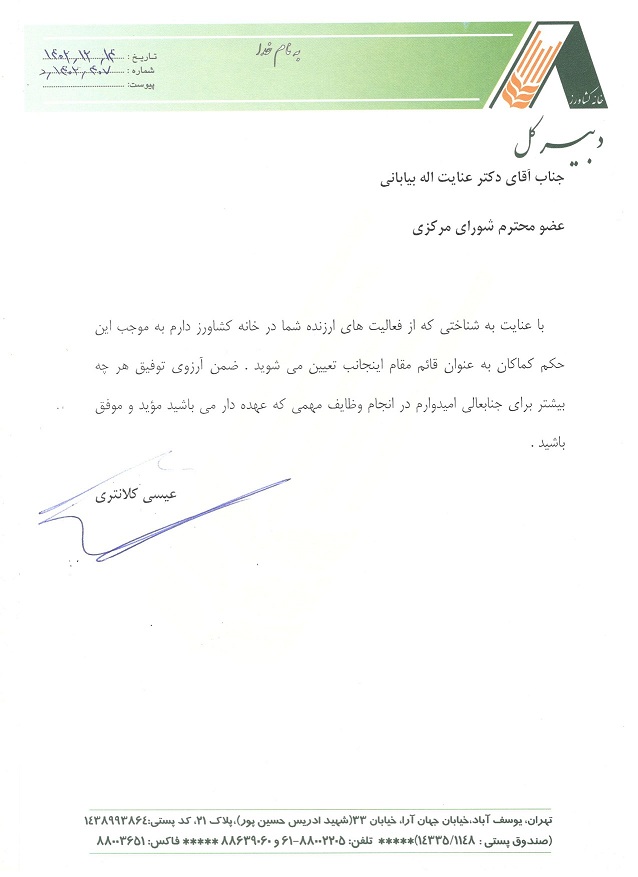 به نام خدا
تاریخ : ۱۴۰۲,۱۲,۱۴
شماره : ۱۴۰۲,۴۰۷,د
پیوست:
خانه کشاورز
دبیر کل
جناب آقای دکتر عنایت اله بیابانی
عضو محترم شورای مرکزی
با عنایت به شناختی که از فعالیت های ارزنده شما در خانه کشاورز دارم به موجب این
حکم کماکان به عنوان قائم مقام اینجانب تعیین می شوید . ضمن آرزوی توفیق هر چه
بیشتر برای جنابعالی امیدوارم در انجام وظایف مهمی که عهده دار می باشید مؤید و موفق
باشید .
عیسی کلانتری
تهران، یوسف آباد،خیابان جهان آرا، خیابان ۳۳(شهید ادریس حسین پور)،پلاک ۲۱، کد پستی:۱۴۳۸۹۹۳۸۶۴
(صندوق پستی : ۱۴۳۳۵/۱۱۴۸)***** تلفن: ۸۸۰۰۲۲۰۵-۶۱ و ۸۸۶۳۹۰۶۰ ***** فاکس: ۸۸۰۰۳۶۵۱